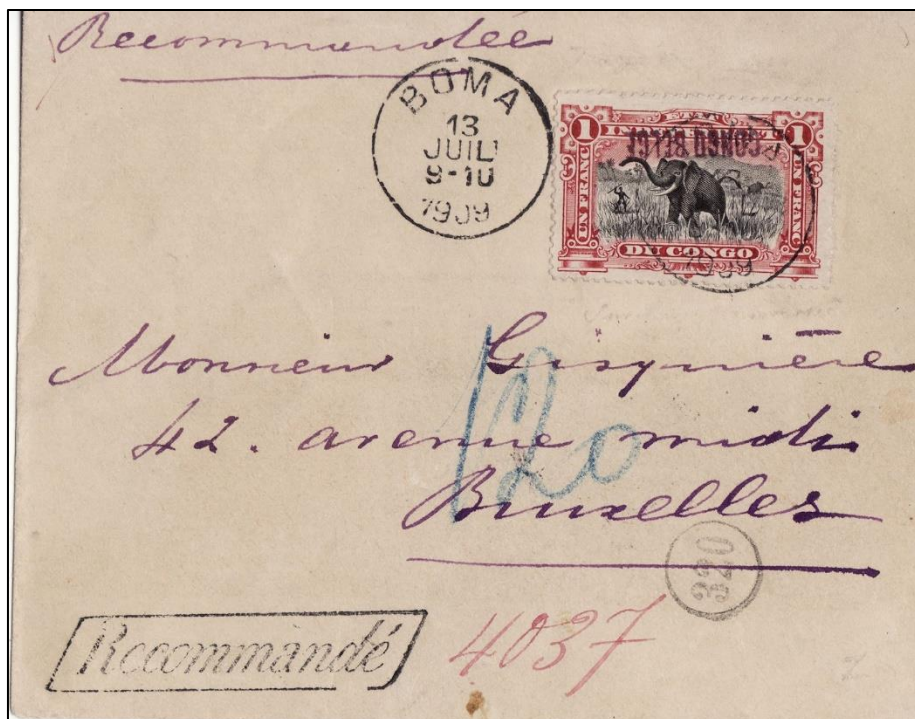 Recommandée
BOMA
13
JUIL
9-10
1909
1 1
CONGO BELGE
UN FRANC UN FRANC
DU CONGO
1909
Monsieur Gisquière
42. avenue midi
Bruxelles
120
320
Recommandé
4037